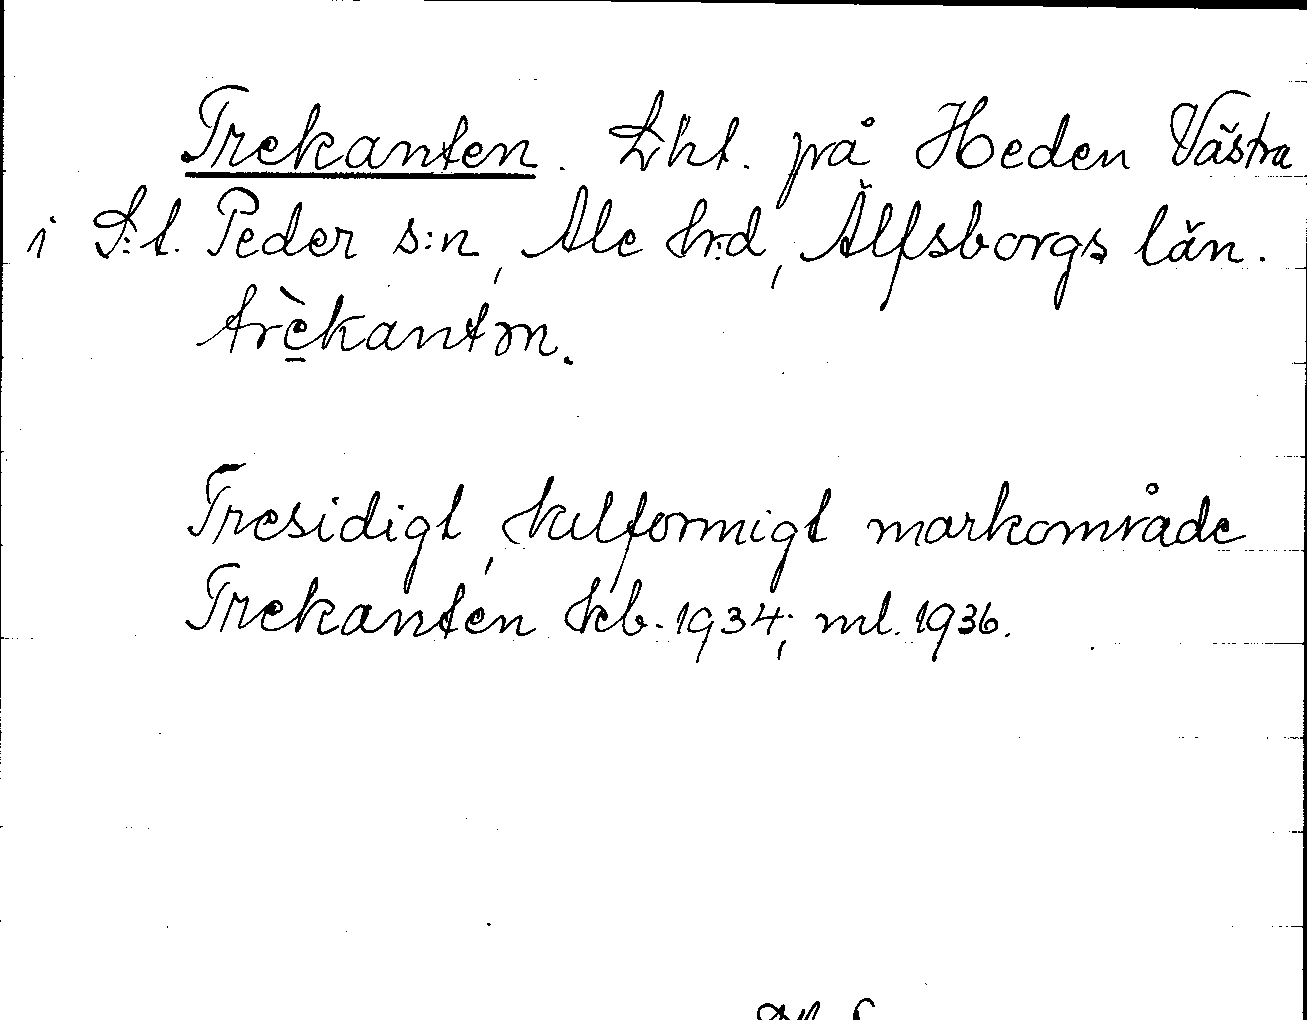 Trekanten. Lht. på Heden Västra
i S:t. Peder s:n, Ale hrd, Älfsborgs län.
trèkantən.
Tresidigt, kilformigt markområde
Trekanten kb. 1934; ml. 1936.